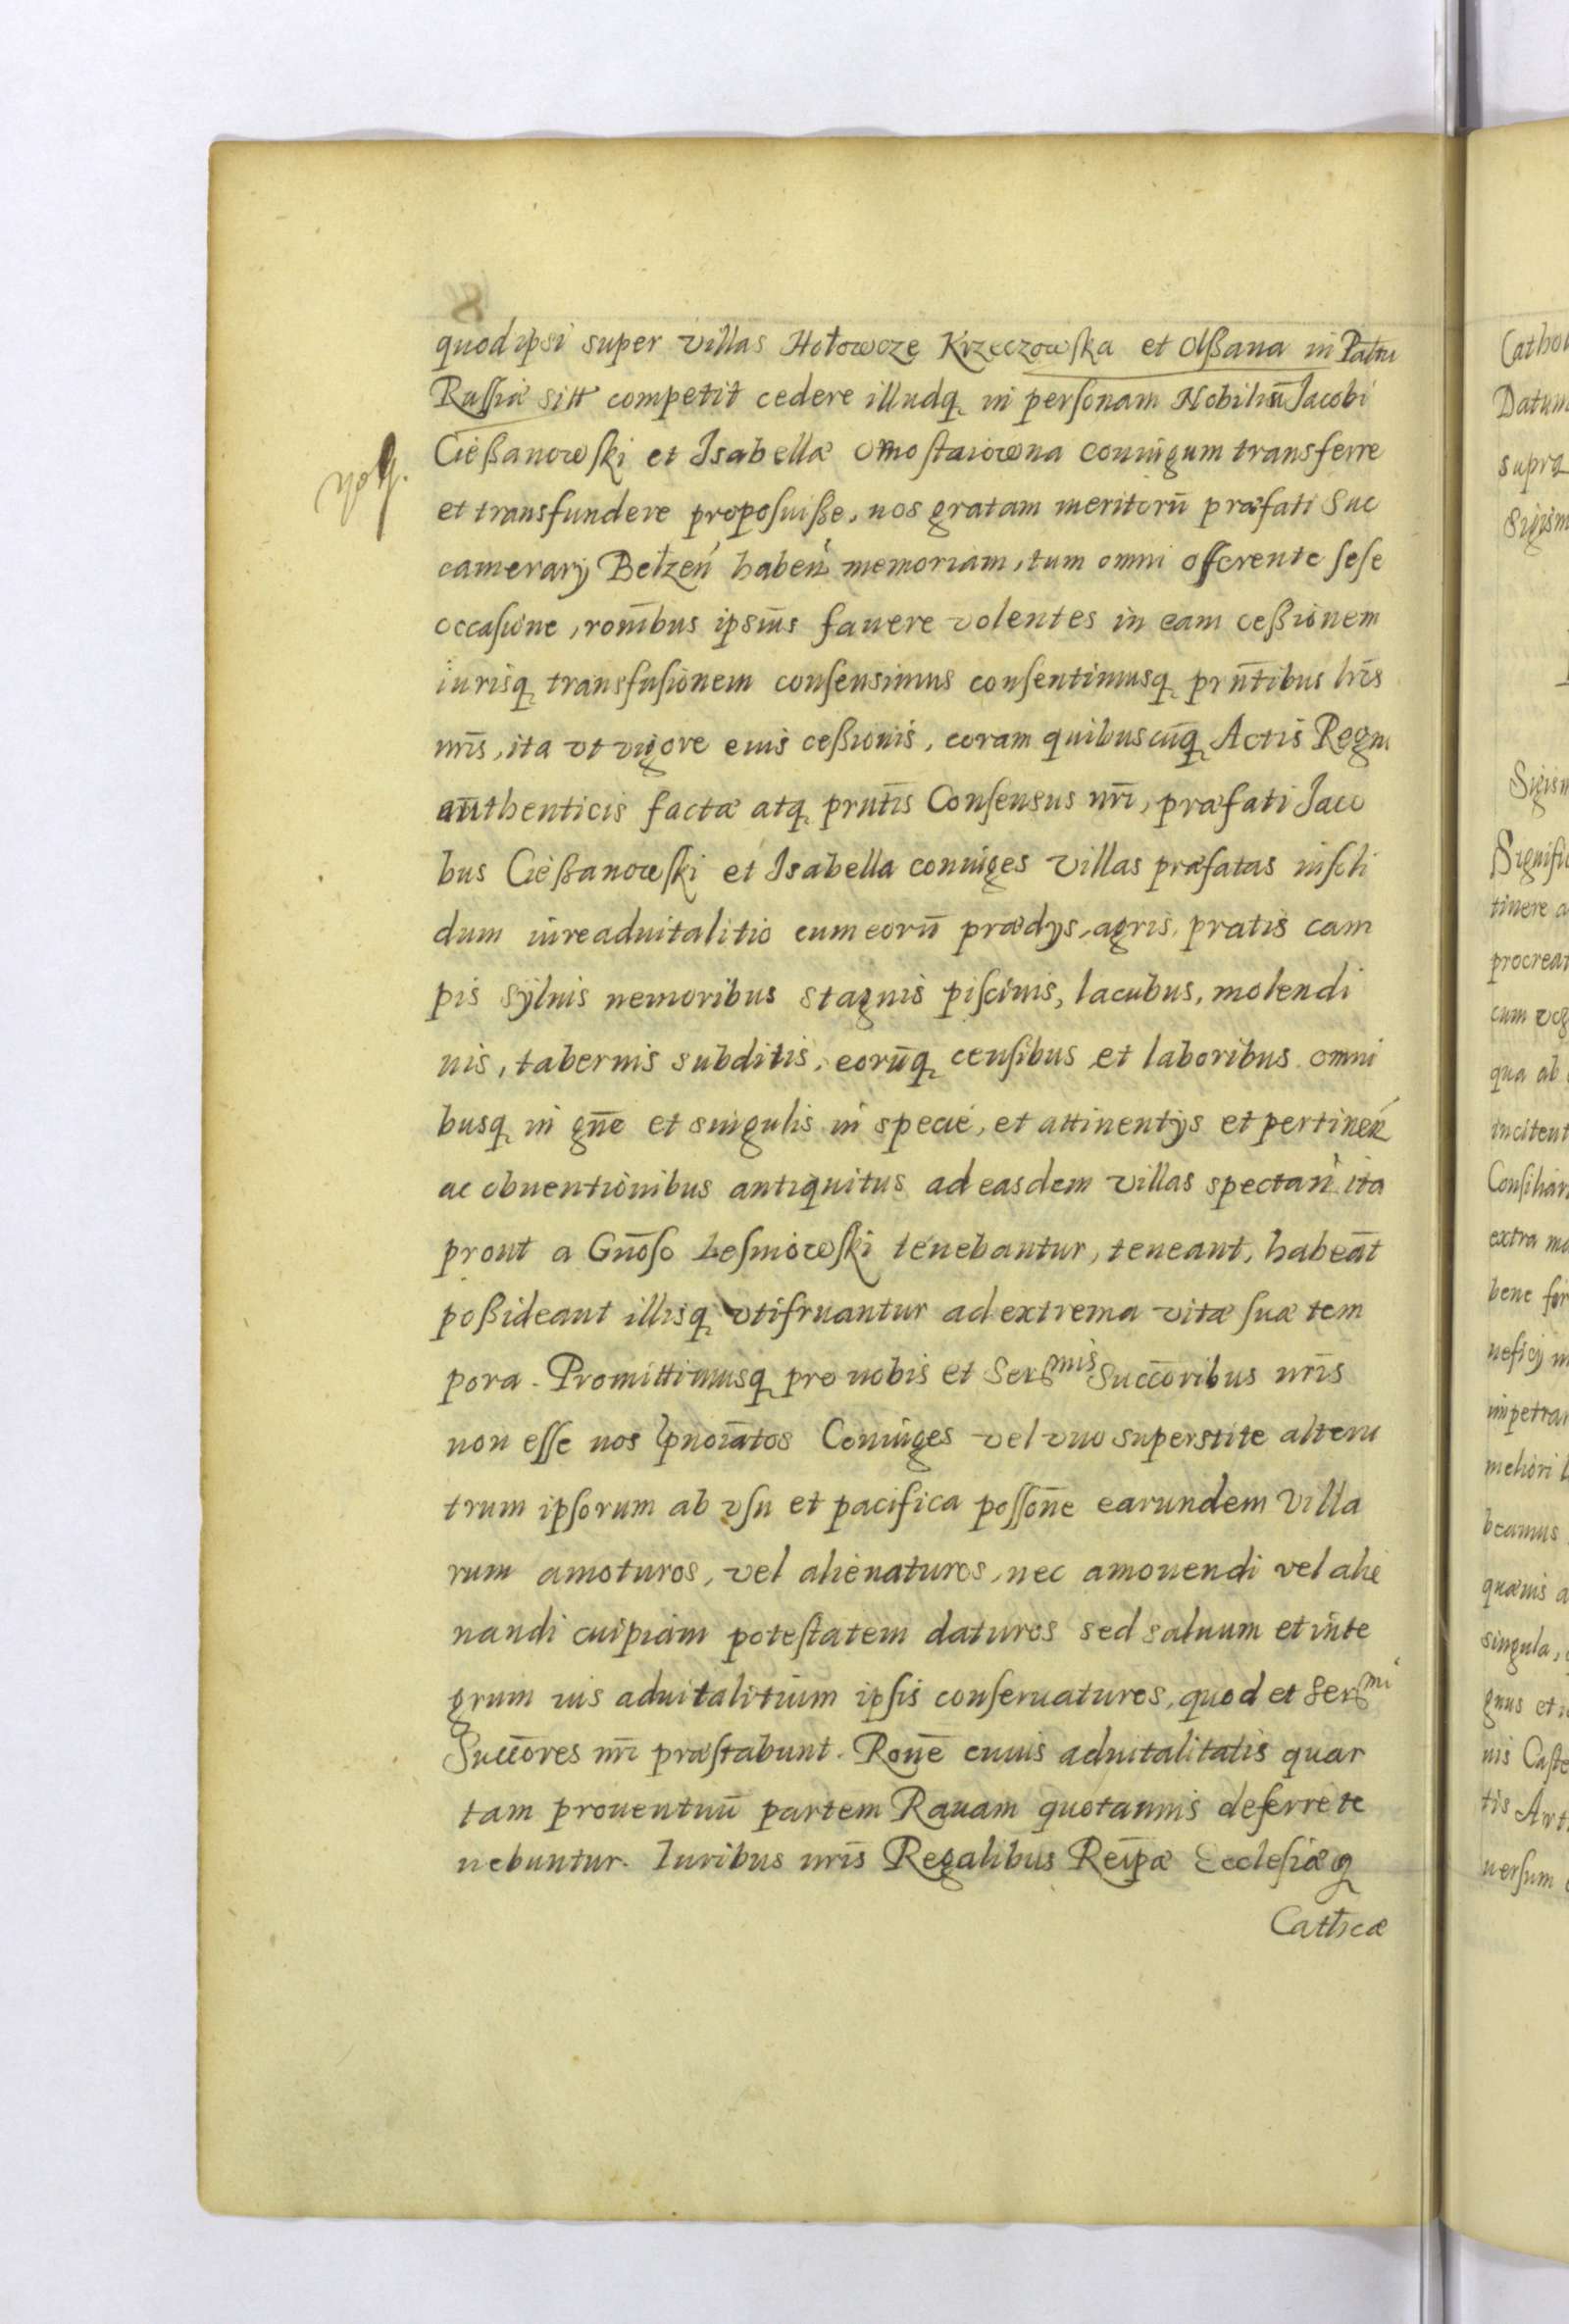 quod ipsi super villas Hołowcze Krzeczowska et Olßana in Pałtu
Russiæ sitt competit cedere illudq in personam Nobiliū Jacobi
Cießanowski et Isabellæ Omostaiowna coniugum transferre
et transfundere proposuiße, nos gratam meritorū præfati Suc
camerary Bełzeń habeń memoriam, tum omni offerente sese
occasione, ronībus ipsius fauere volentes in eam ceßionem
iurisq transfusionem consensimus consentimusq prūtibus lrīs
nrīs, ita vt vigore eius ceßionis, coram quibuscūq Actis Regni
authenticis factæ atq prūtis Consensus nrī, præfati Jaco
bus Cießanowski et Isabella coniuges villas præfatas insoli
dum iure aduitalitio cum eorū prædys, agris, pratis cam
pis syluis nemoribus stagnis piscinis, lacubus, molendi
nis, tabernis subditis, eorūq censibus et laboribus omni
busq in gñe et singulis in specie, et attinentys et pertineń
ac obuentionibus antiquitus ad easdem villas spectań ita
prout a Gñoso Lesniowski tenebantur, teneant, habeāt
poßideant illisq vtifruantur ad extrema vitæ suæ tem
pora. Promittimusq pro nobis et Ser<sup>mis</sup> Succoribus nrīs
non esse nos pnoiātos Coniuges vel vno superstite alteru
trum ipsorum ab vsu et pacifica possoñe earundem villa
rum amoturos, vel alienaturos, nec amouendi vel alie
nandi cuipiam potestatem daturos sed saluum et inte
grum ius aduitalitium ipsis conseruaturos, quod et Ser<sup>mi</sup>
Succores nrī præstabunt. Ronē cuius aduitalitatis quar
tam prouentuū partem Rauam quotannis deferre te
nebuntur. Iuribus nrīs Regalibus Reipæ Ecclesiæq
Cathcæ